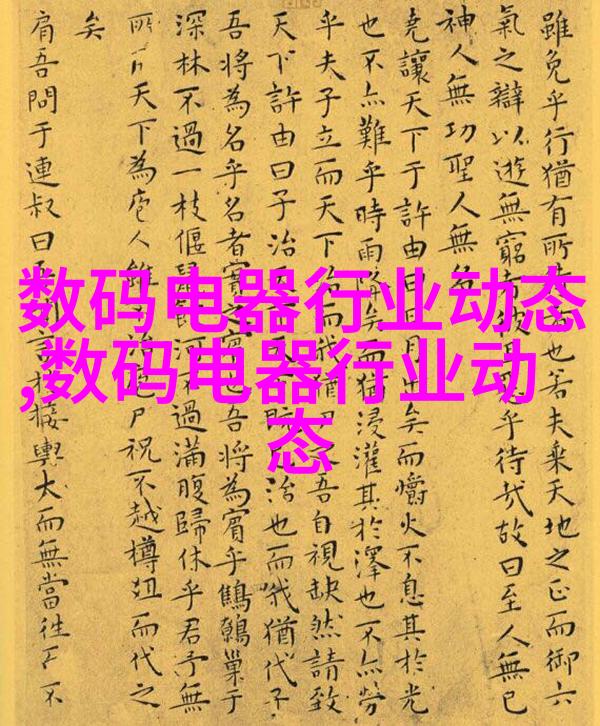 数码电器行业动态
,数码电器行业动
态
雖免乎行猶有所也若夫乘天地之正而御六
氣之辯以遊無窮者彼乎待哉故曰至人無己
神人無功聖人無名
堯讓天下于許由曰日月出矣而爝火不息其於光
也不亦難乎時雨降矣而猶浸灌其於澤也不亦勞
乎夫子立而天下治而我猶吾自視缺然請致
天下許由曰子治天治也而我猶代子
吾將為名乎名者實之也吾將為賓乎鷦鷯巢于
深林不過一枝偃鼠河不過滿腹歸休乎君予無
所天下為庖人雖治庖尸祝不越樽俎而代之
矣
肩吾問于連叔曰言接輿大而無當往而不